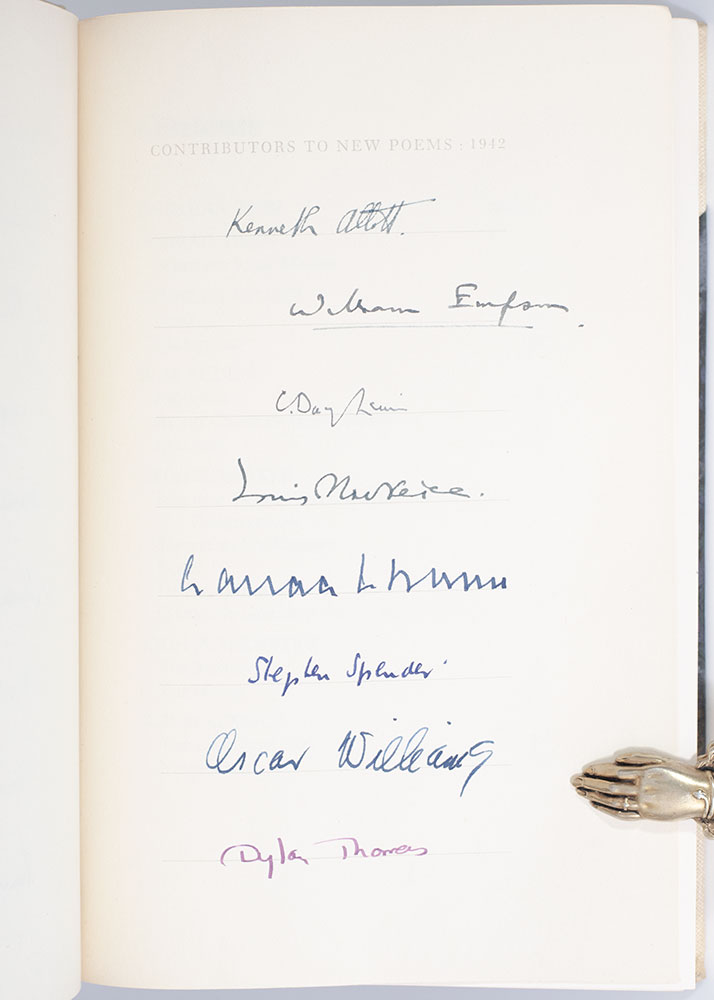 CONTRIBUTORS TO NEW POEMS · 1942
Kenneth Allott.
William Empson.
C. Day Lewis
Louis MacNeice.
Stephen Spender
Oscar Williams
Dylan Thomas